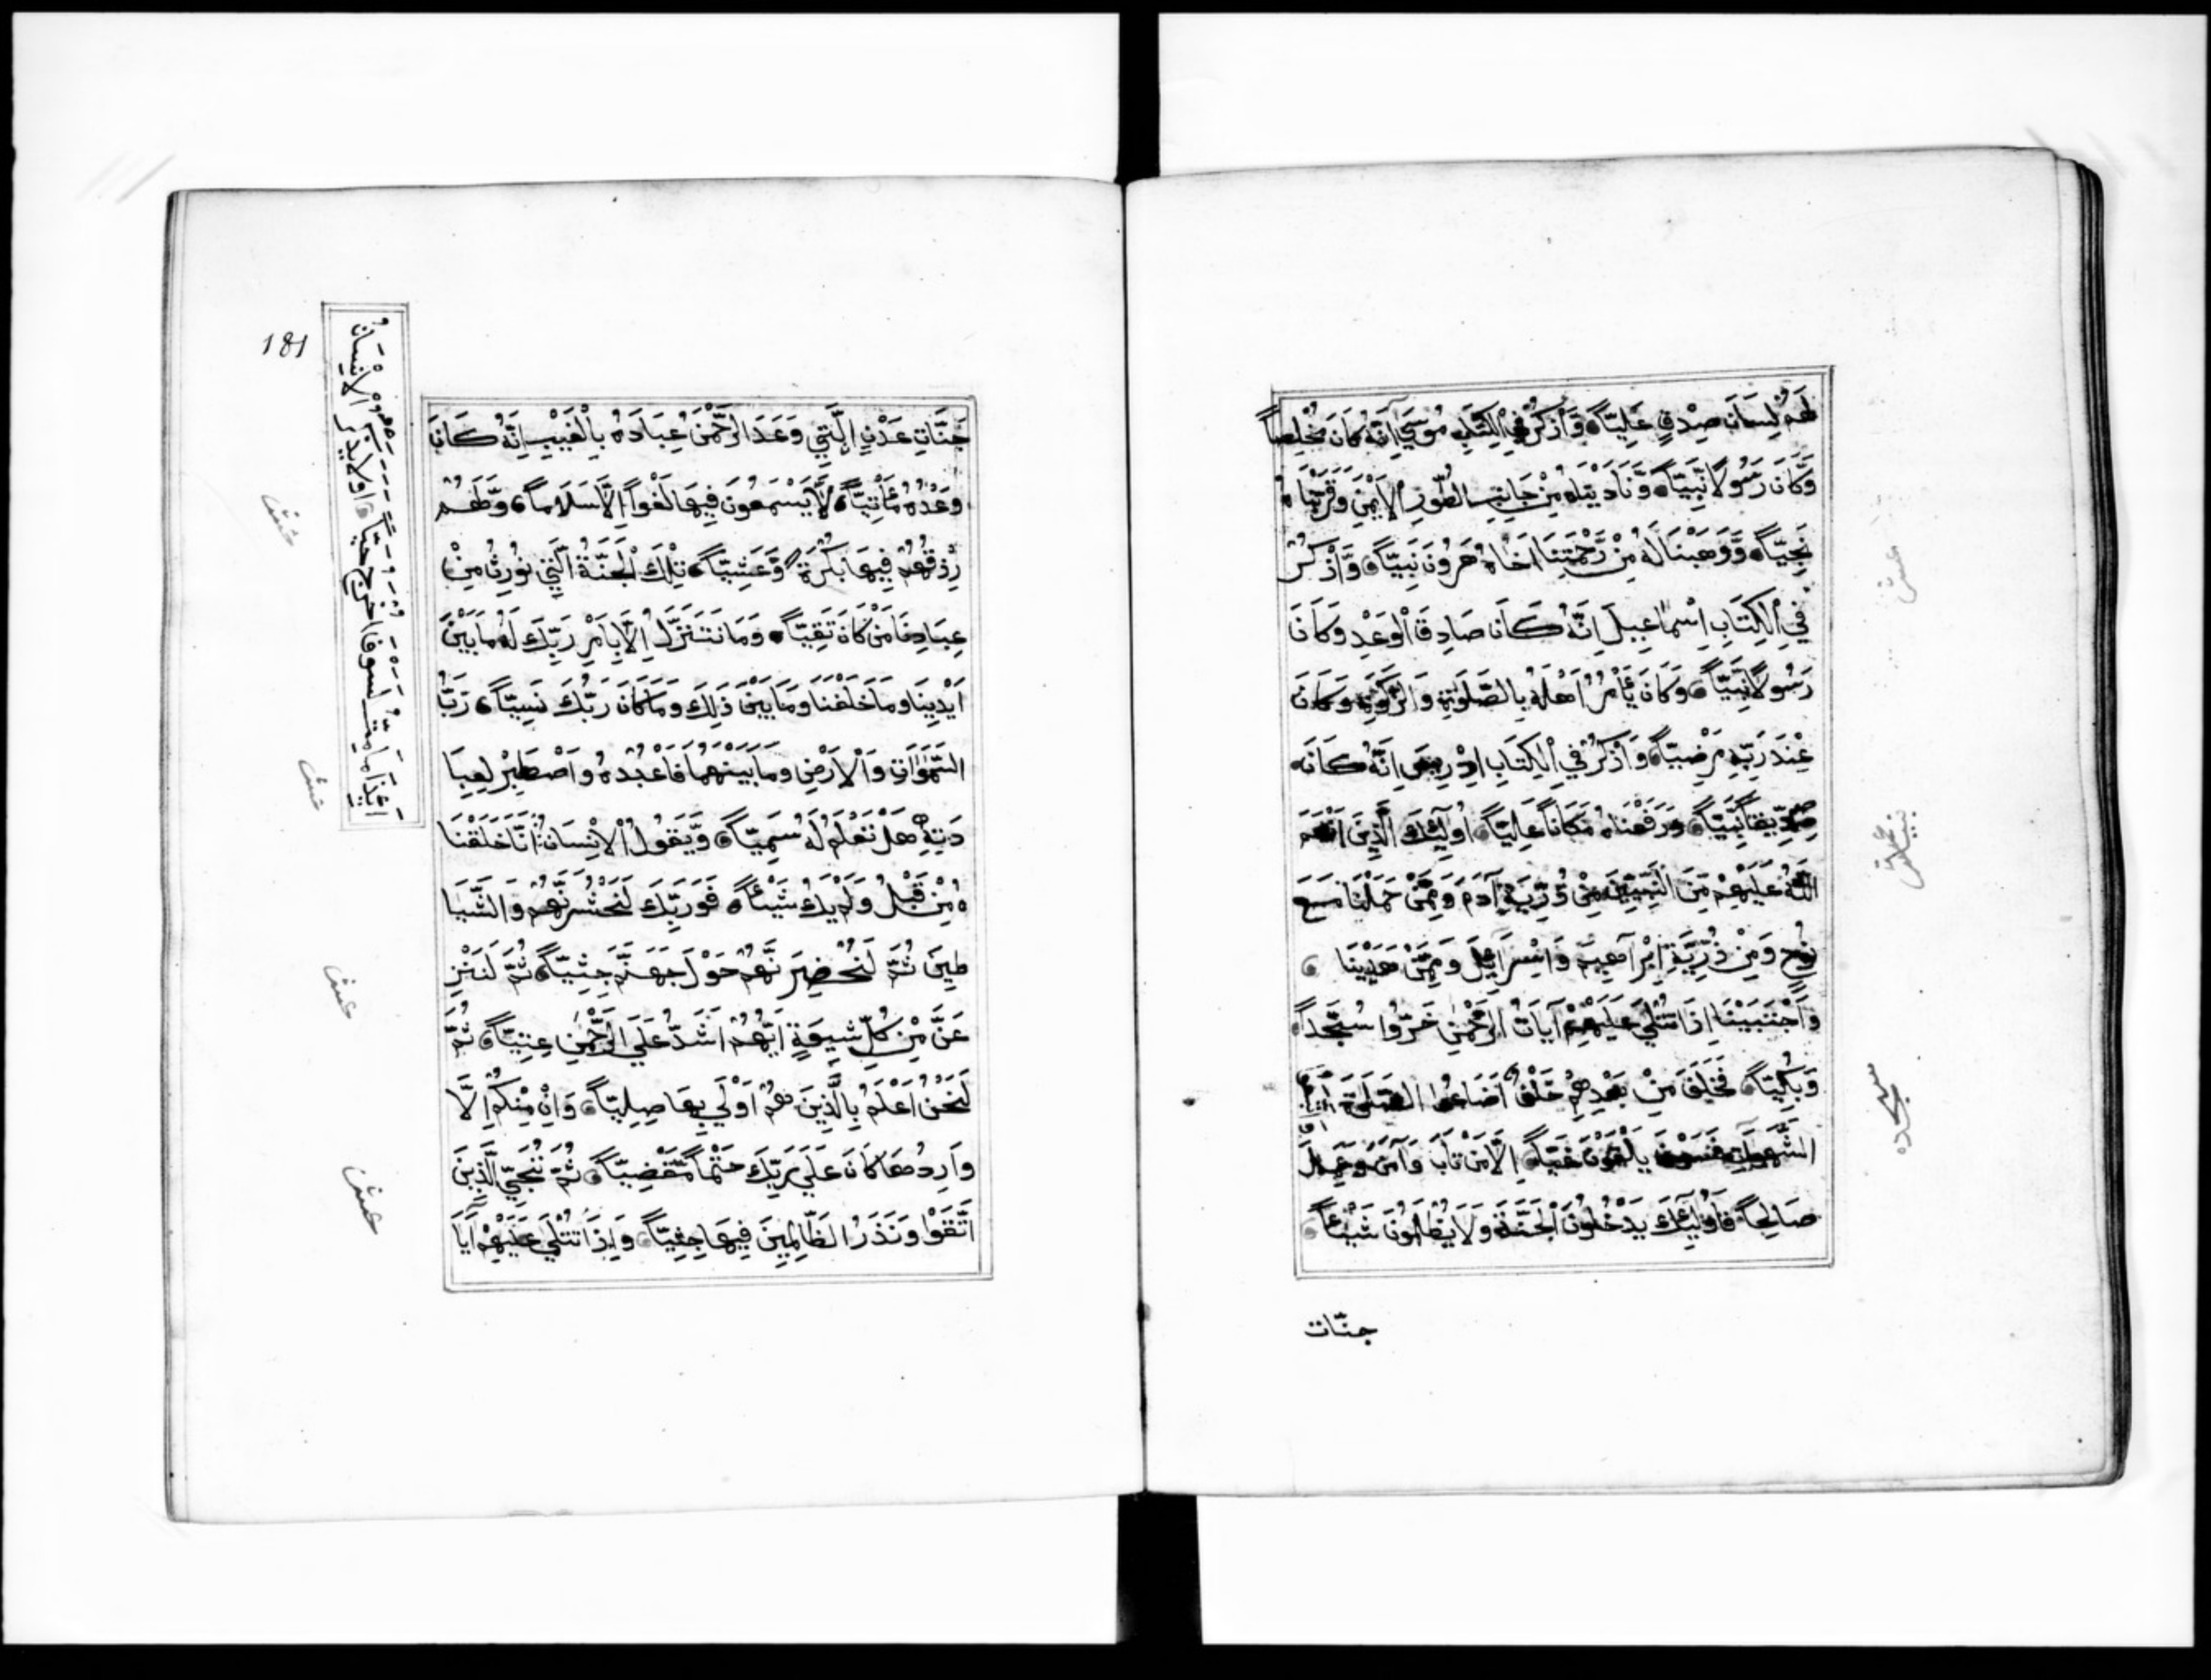 لَهُمْ لِسَانَ صِدْقٍ عَلِيّاً وَاَذْكُرْ فِي الْكِتَبِ مُوسَيٓ اِنَّهُ كَانَ مُخْلِصاً
وَّكَانَ رَسُولاً نَّبِيّاً وَنَادَيْنَاهُ مِنْ جَانِبِ الطُّورِ الْاَيْمَنِ وَقَرَّبْنَاهُ
نَجِيّاً وَّوَهَبْنَا لَهُ مِنْ رَّحْمَتِنَا اَخَاهُ هَرُونَ نَبِيّاً وَاَذْكُرْ
فِي الْكِتَابِ اِسْمَاعِيلَ اِنَّهُ كَانَ صَادِقَ الْوَعْدِ وَكَانَ
رَسُولاً نَّبِيّاً وَكَانَ يَأْمُرُ اَهْلَهُ بِالصَّلَوٰةِ وَالزَّكَوٰةِ وَكَانَ
عِنْدَ رَبِّهِ مَرْضِيّاً وَاَذْكُرْ فِي الْكِتَابِ اِدْرِيسَ اِنَّهُ كَانَ
صِدِّيقاً نَّبِيّاً وَرَفَعْنَاهُ مَكَاناً عَلِيّاً اُولَٓئِكَ الَّذِينَ اَنْعَمَ
اللّٰهُ عَلَيْهِمْ مِنَ النَّبِيِّنَ مِنْ ذُرِّيَةِ آدَمَ وَمِمَّنْ حَمَلْنَا مَعَ
نُوحٍ وَمِنْ ذُرِّيَّةِ اِبْرٰاهِيمَ وَاِسْرَآئِيلَ وَمِمَّنْ هَدَيْنَا
وَاَجْتَبَيْنَا اِذَا تُتْلَيٰ عَلَيْهِمْ آيَاتُ الرَّحْمٰنِ خَرُّوا سُجَّداً
وَبُكِيّاً فَخَلَفَ مِنْ بَعْدِهِمْ خَلْفٌ اَضَاعُوا الصَّلَوٰةَ
الشَّهَوَاتِ فَسَوْفَ يَلْقَوْنَ غَيّاً اِلَّا مَنْ تَابَ وَآمَنَ وَعَمِلَ
صَالِحاً فَاُولَٓئِكَ يَدْخُلُونَ الْجَنَّةَ وَلَا يُظْلَمُونَ شَيْئاً
جنّات
عشر
سجده
181
جَنَّاتِ عَدْنٍ اِلَّتِي وَعَدَ الرَّحْمٰنُ عِبَادَهُ بِالْغَيْبِ اِنَّهُ كَانَ
وَعْدُهُ مَأْتِيّاً لَّا يَسْمَعُونَ فِيهَا لَغْواً اِلَّا سَلَاماً وَّلَهُمْ
رِزْقُهُمْ فِيهَا بُكْرَةً وَّعَشِيّاً تِلْكَ الْجَنَّةُ الَّتِي نُورِثُ مِنْ
عِبَادِنَا مَنْ كَانَ تَقِيّاً وَمَا نَتَنَزَّلُ اِلَّا بِاَمْرِ رَبِّكَ لَهُ مَا بَيْنَ
اَيْدِينَا وَمَا خَلْفَنَا وَمَا بَيْنَ ذَلِكَ وَمَا كَانَ رَبُّكَ نَسِيّاً رَبُّ
السَّمَوَاتِ وَالْاَرْضِ وَمَا بَيْنَهُمَا فَاعْبُدْهُ وَاصْطَبِرْ لِعِبَا
دَتِهِ هَلْ تَعْلَمُ لَهُ سَمِيّاً وَّيَقُولُ الْاِنْسَانُ اَنَّا خَلَقْنَا
هُ مِنْ قَبْلُ وَلَمْ يَكُ شَيْئاً فَوَرَبِّكَ لَنَحْشُرَنَّهُمْ وَالشَّيَا
طِينَ ثُمَّ لَنُحْضِرَنَّهُمْ حَوْلَ جَهَنَّمَ جِثِيّاً ثُمَّ لَنَنْزِ
عَنَّ مِنْ كُلِّ شِيعَةٍ اَيُّهُمْ اَشَدُّ عَلَي الرَّحْمٰنِ عِتِيّاً ثُمَّ
لَنَحْنُ اَعْلَمُ بِالَّذِينَ هُمْ اَوْلَي بِهَا صِلِيّاً وَاِنْ مِنْكُمْ اِلَّا
وَارِدُهَا كَانَ عَلَي رَبِّكَ حَتْماً مَّقْضِيّاً ثُمَّ نُنَجِّي الَّذِينَ
اتَّقَوْا وَنَذَرُ الظَّالِمِينَ فِيهَا جِثِيّاً وَاِذَا تُتْلَي عَلَيْهِمْ آيَا
اَئِذَا مَا مِتُّ لَسَوْفَ اُخْرَجُ حَيّاً اَوَلَا يَذْكُرُ الْاِنْسَانُ
عشر
عشر
عشر
عشر